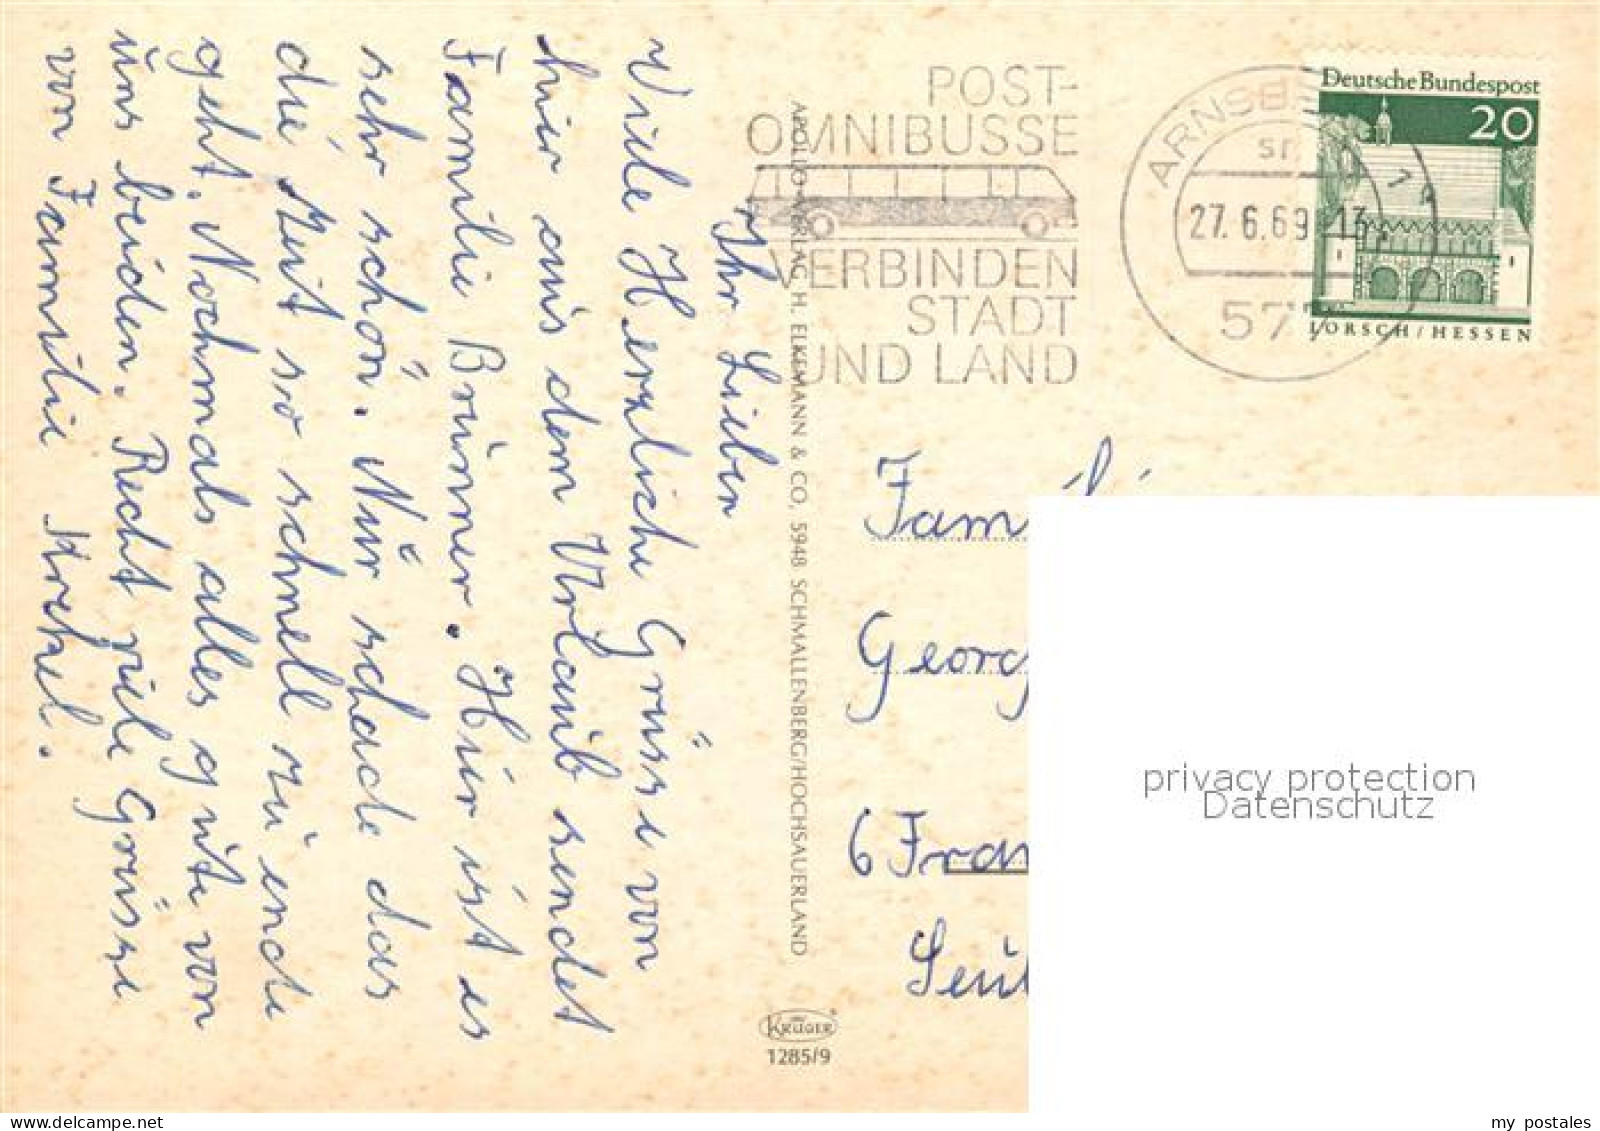 Ihr Lieben
Viele Herzliche Grüsse von
hier aus dem Urlaub sendet
Familie Brünner. Hier ist es
sehr schön. Nur schade das
die Zeit so schnell zu ende
geht. Nochmals alles gute von
uns beiden. Recht viele Grüsse
von Familie Krekel.
APOLLO-VERLAG, H. ELKEMANN & CO, 5948 SCHMALLENBERG/HOCHSAUERLAND
KRÜGER
1285/9
POST-
OMNIBUSSE
VERBINDEN
STADT
UND LAND
ARNSBE
27.6.69-13
577
Deutsche Bundespost
20
LORSCH/HESSEN
Fam
Georg
6 Fran
privacy protection
Datenschutz
my postales
www.delcampe.net